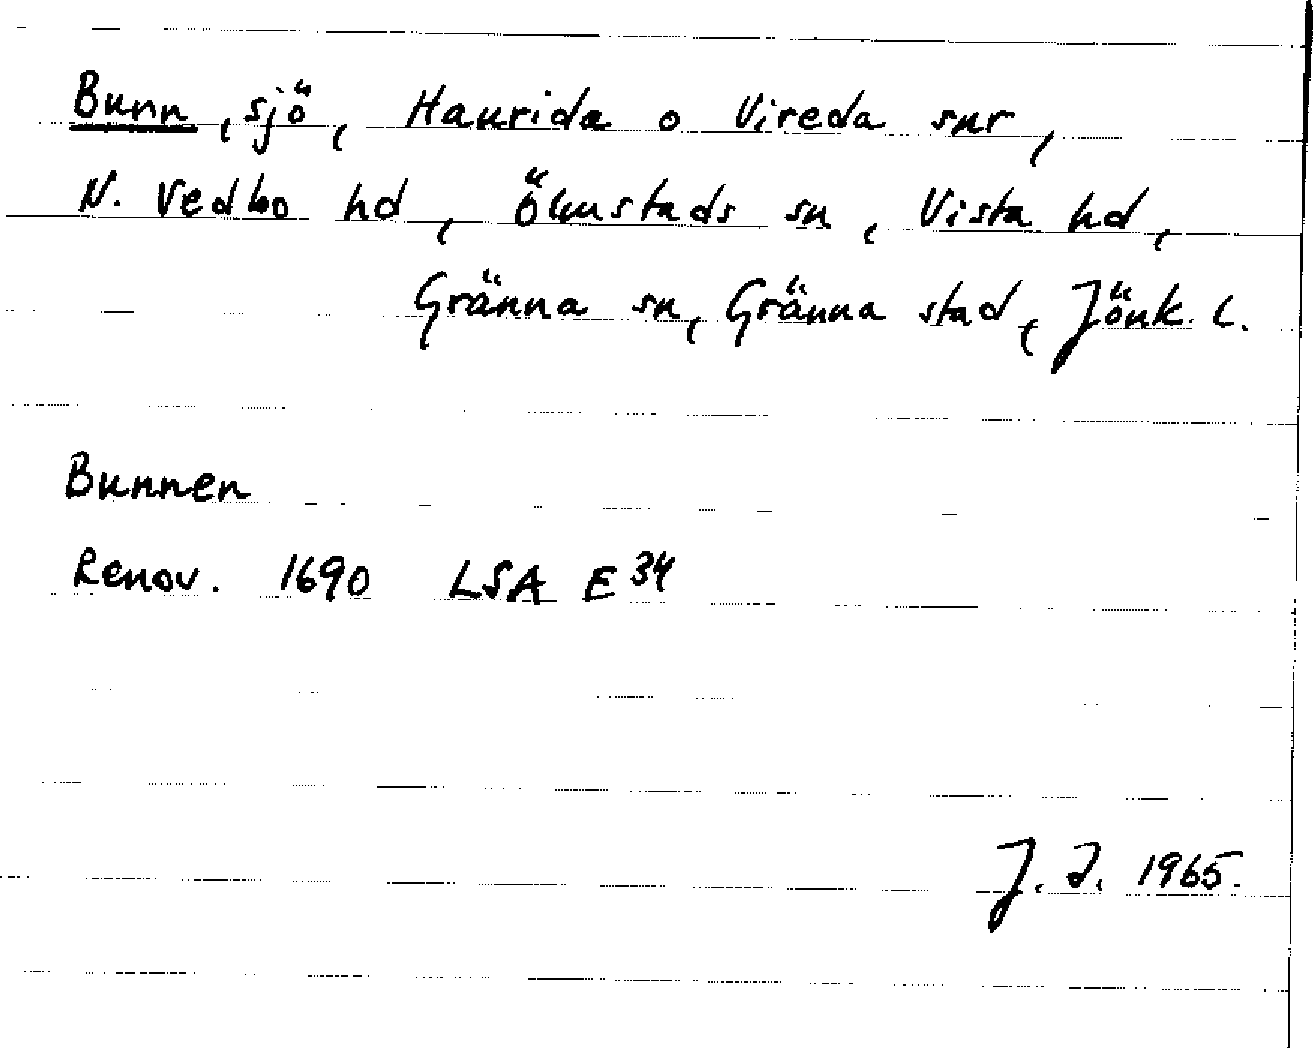 Bunn, sjö, Haurida o Vireda snr,
N. Vedbo hd, Ölmstads sn, Vista hd,
Gränna sn, Gränna stad, Jönk. l.
Bunnen
Renov. 1690 LSA E 34
J. I. 1965.